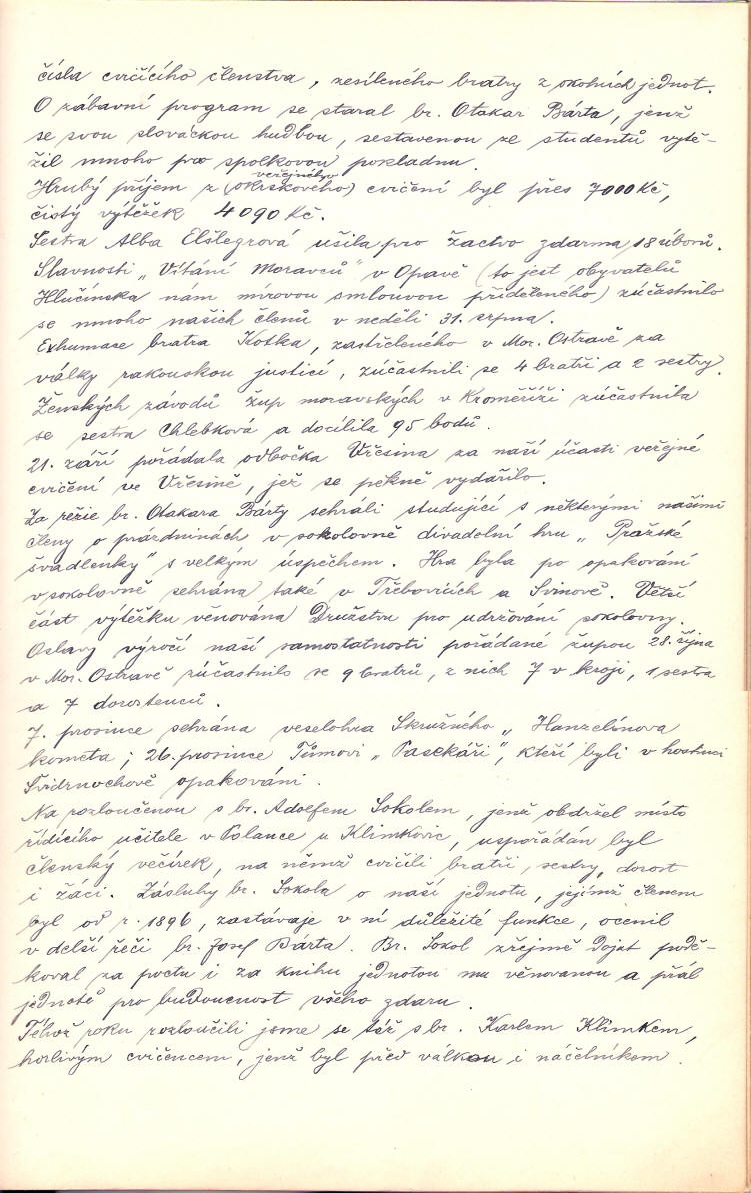 čísla cvičícího členstva, zesíleného bratry z okolních jednot.
O zábavní program se staral br. Otakar Bárta, jenž
se svou slováckou hudbou, sestavenou ze studentů vytě-
žil mnoho pro spolkovou pokladnu.
veřejného
Hrubý příjem z (okrskového) cvičení byl přes 7000 Kč,
čistý výtěžek 4090 Kč.
Sestra Alba Elšlegrová ušila pro žactvo zdarma 18 úborů.
Slavnosti „Vítání Moravců" v Opavě (to jest obyvatelů
Hlučínska nám mírovou smlouvou přiděleného) zúčastnilo
se mnoho našich členů v neděli 31. srpna.
Exhumace bratra Kotka, zastřeleného v Mor. Ostravě za
války rakouskou justicí, zúčastnili se 4 bratři a 2 sestry.
Ženských závodů žup moravských v Kroměříži zúčastnila
se sestra Chlebková a docílila 95 bodů.
21. září pořádala odbočka Vřesina za naší účasti veřejné
cvičení ve Vřesině, jež se pěkně vydařilo.
Za režie br. Otakara Bárty sehráli studující s některými našimi
členy o prázdninách v sokolovně divadelní hru „Pražské
švadlenky" s velkým úspěchem. Hra byla po opakování
v sokolovně sehrána také v Třebovicích a Svinově. Větší
část výtěžku věnována Družstvu pro udržování sokolovny.
Oslavy výročí naší samostatnosti pořádané župou 28. října
v Mor. Ostravě zúčastnilo se 9 bratrů, z nich 7 v kroji, 1 sestra
a 7 dorostenců.
7. prosince sehrána veselohra Skružného „Hanzelínova
kometa; 26. prosince Tůmovi „Pasekáři", kteří byli v hostinci
Švidrnochově opakováni.
Na rozloučenou s br. Adolfem Sokolem, jenž obdržel místo
řídícího učitele v Polance u Klimkovic, uspořádán byl
členský večírek, na němž cvičili bratři, sestry, dorost
i žáci. Zásluhy br. Sokola o naší jednotu, jejímž členem
byl od r. 1896, zastávaje v ní důležité funkce, ocenil
v delší řeči br. Josef Bárta. Br. Sokol zřejmě dojat podě-
koval za poctu i za knihu jednotou mu věnovanou a přál
jednotě pro budoucnost všeho zdaru.
Téhož roku rozloučili jsme se též s br. Karlem Klimkem,
horlivým cvičencem, jenž byl před válkou i náčelníkem.